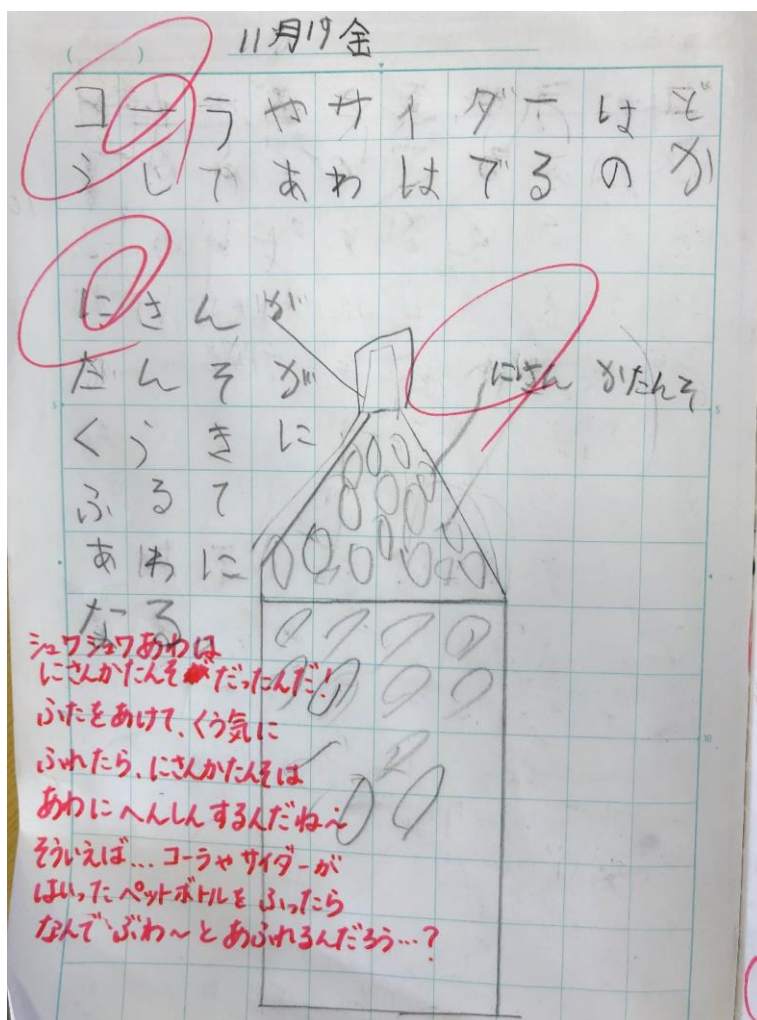 11月19金
コーラやサイダーはど
うしてあわはでるのか
にさんが
たんそが
くうきに
ふるて
あわに
なる
にさん かたんそ
シュワシュワあわは
にさんかたんそだったんだ!
ふたをあけて、くう気に
ふれたら、にさんかたんそは
あわにへんしんするんだね〜
そういえば...コーラやサイダーが
はいったペットボトルをふったら
なんでぶわ〜とあふれるんだろう...?
5
5
10